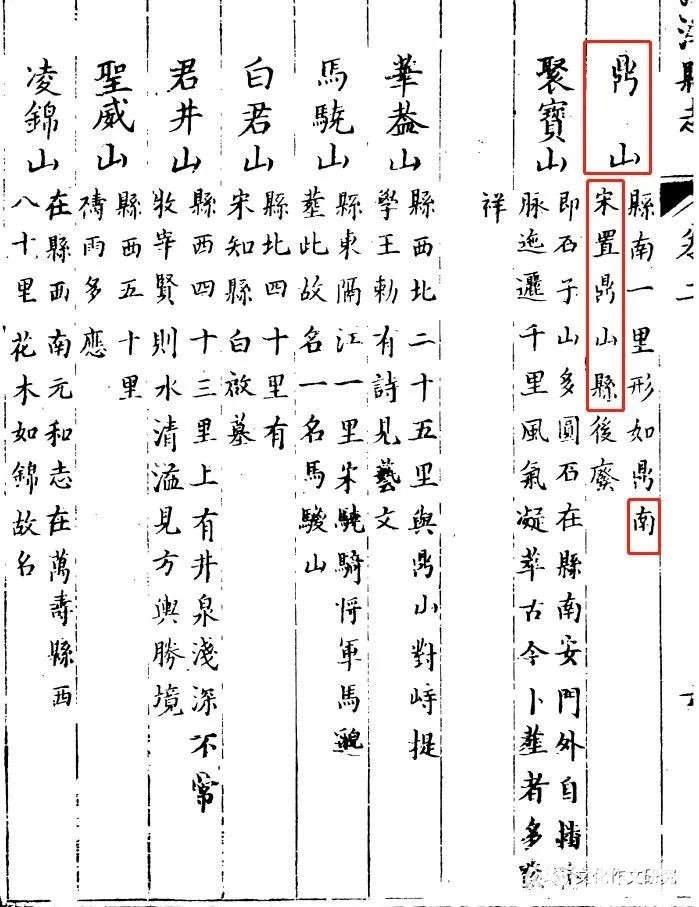 縣志
卷二
鼎山
縣南一里形如鼎南
宋置鼎山縣後廢
聚寶山
即石子山多圓石在縣南安門外自
脉迤邐千里風氣凝萃古今卜塟者多
祥
華葢山
縣西北二十五里與鼎山對峙提
學王勅有詩見藝文
馬驍山
縣東隔江一里宋驍騎將軍馬
塟此故名一名馬驂山
白君山
縣北四十里有
宋知縣白啟墓
君井山
縣西四十三里上有井泉淺深不常
牧宰賢則水清溢見方輿勝境
聖威山
縣西五十里
禱雨多應
凌錦山
在縣西南元和志在萬壽縣西
八十里花木如錦故名
文化作文研究